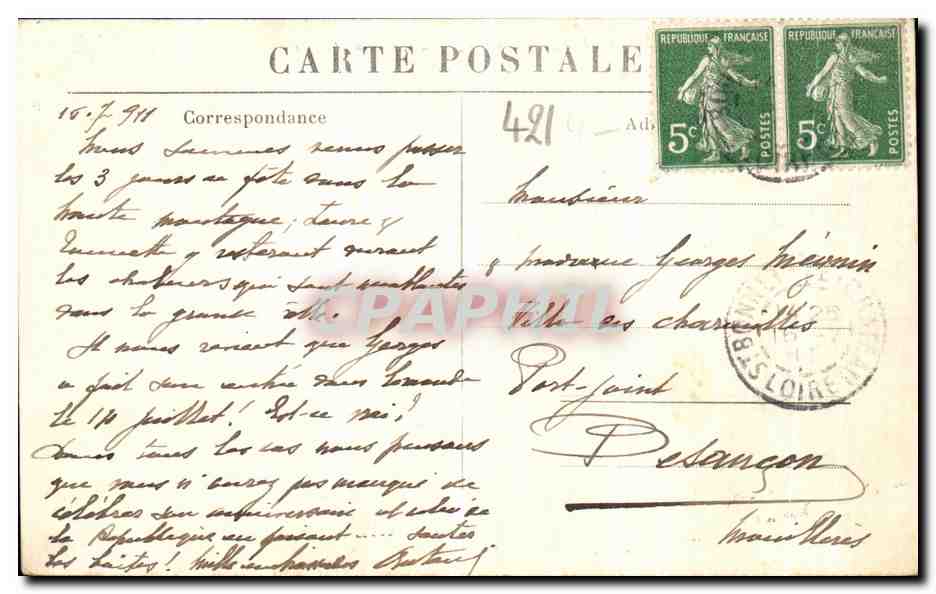 CARTE POSTALE
REPUBLIQUE FRANÇAISE
5c POSTES
REPUBLIQUE FRANÇAISE
5c POSTES
16.7.911
Correspondance
421
Ad
Nous sommes venus passer
les 3 jours de fête dans la
haute montagne;
y resteront durant
les chaleurs qui sont
dans la grande ville.
Il nous revient que Georges
a fait son entrée dans le monde
le 14 juillet! Est-ce vrai?
Dans tous les cas nous pensons
que vous n'aurez pas manqué de
célébrer son anniversaire et celui de
la République en faisant ..... sauter
les boîtes! Mille embrassades
CPAPHIL
Monsieur
& madame Georges
Villa des charmilles
Port-Joint
Besançon
LOIRE